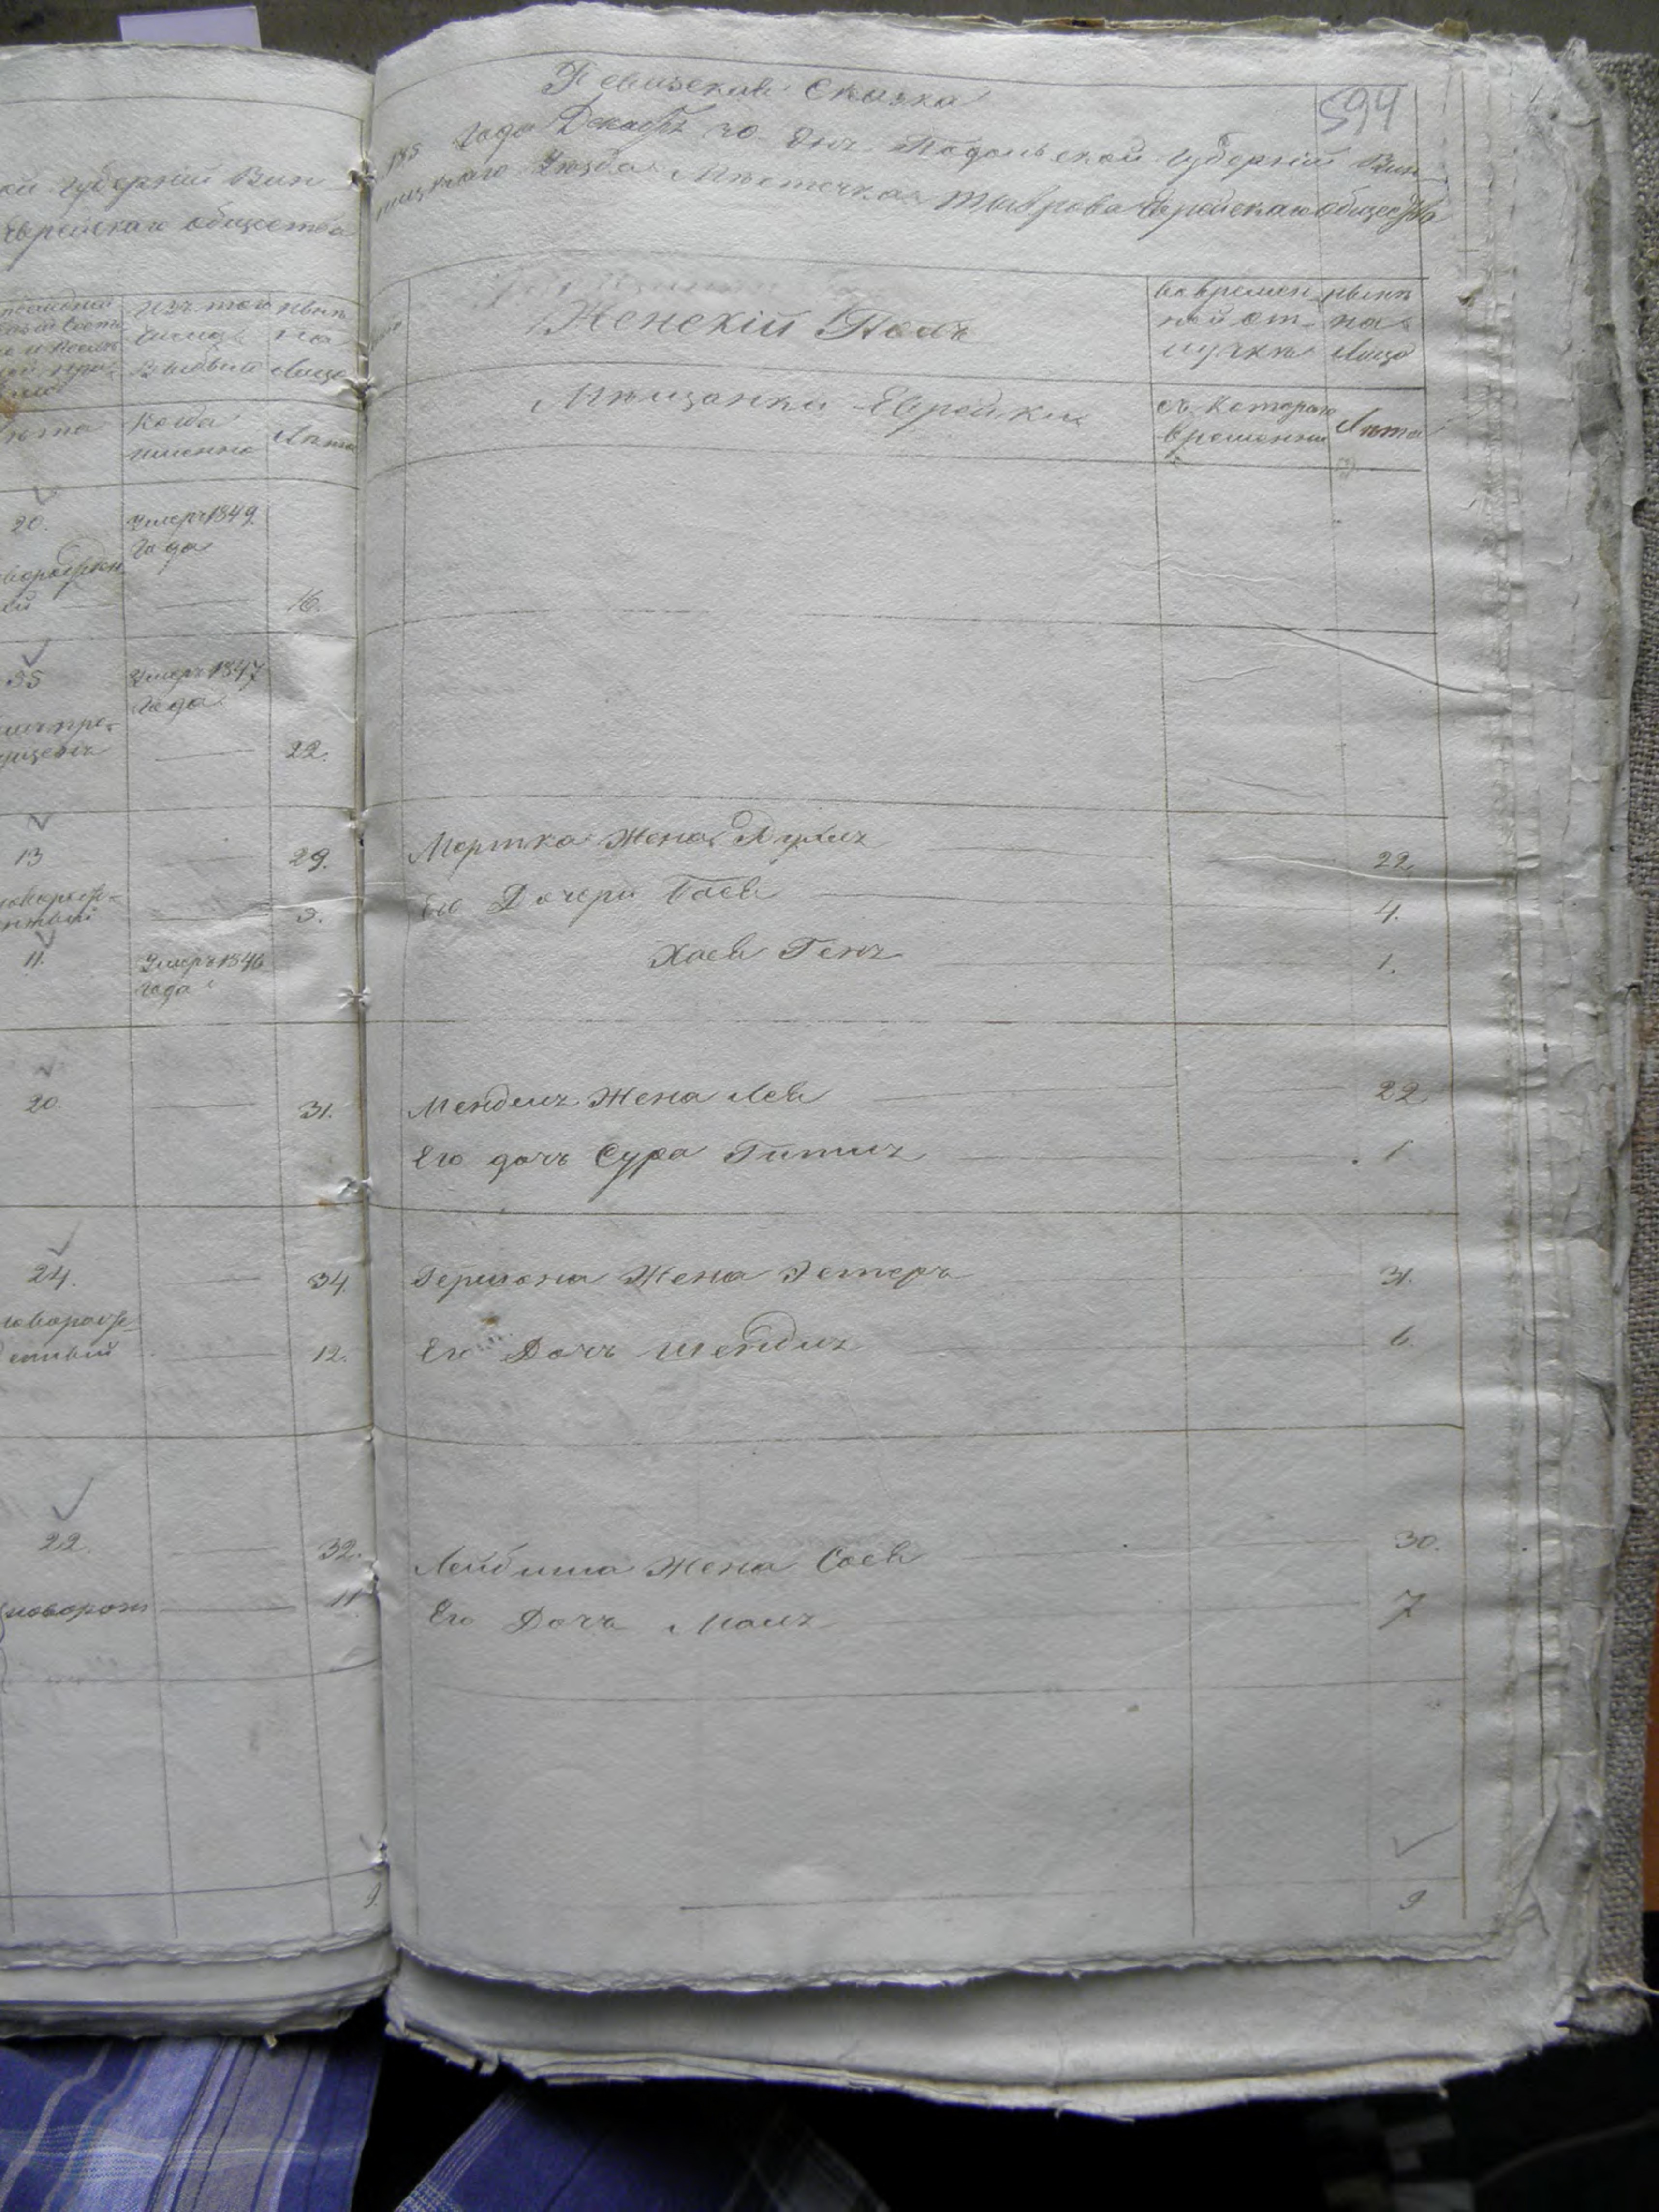 ой Губерніи Вин
Еврейскаго общества
изъ того
числа
выбыли
нынѣ
на
Лицо
когда
именно
Лѣта
20.
Умеръ 1849
Года
16.
35
Умеръ 1847
Года
22.
13
29.
3.
11.
Умеръ 1846
Года
20
31.
24.
34
новорож
денный
12.
22.
32.
новорож
11
9.
594
Ревизская Сказка
185 Года Декабря 20 дня Подольской Губерніи Вин
ницкаго Уѣзда Мѣстечка Тыврова Еврейскаго общества
Женскій Полъ
во времен
ной от
лучкѣ
нынѣ
на
Лицо
Мѣщанки Еврейки
съ котораго
времени
Лѣта
Мортка Жена 22
Его Дочери Бася 4.
Хася Геня 1.
Менделя Жена Лея 22
Его дочь Сура Гитля 1
Гершона Жена Эстеръ 31.
Его Дочь Шендля 6.
Лейбиша Жена Сося 30.
Его Дочь Маля 7
9